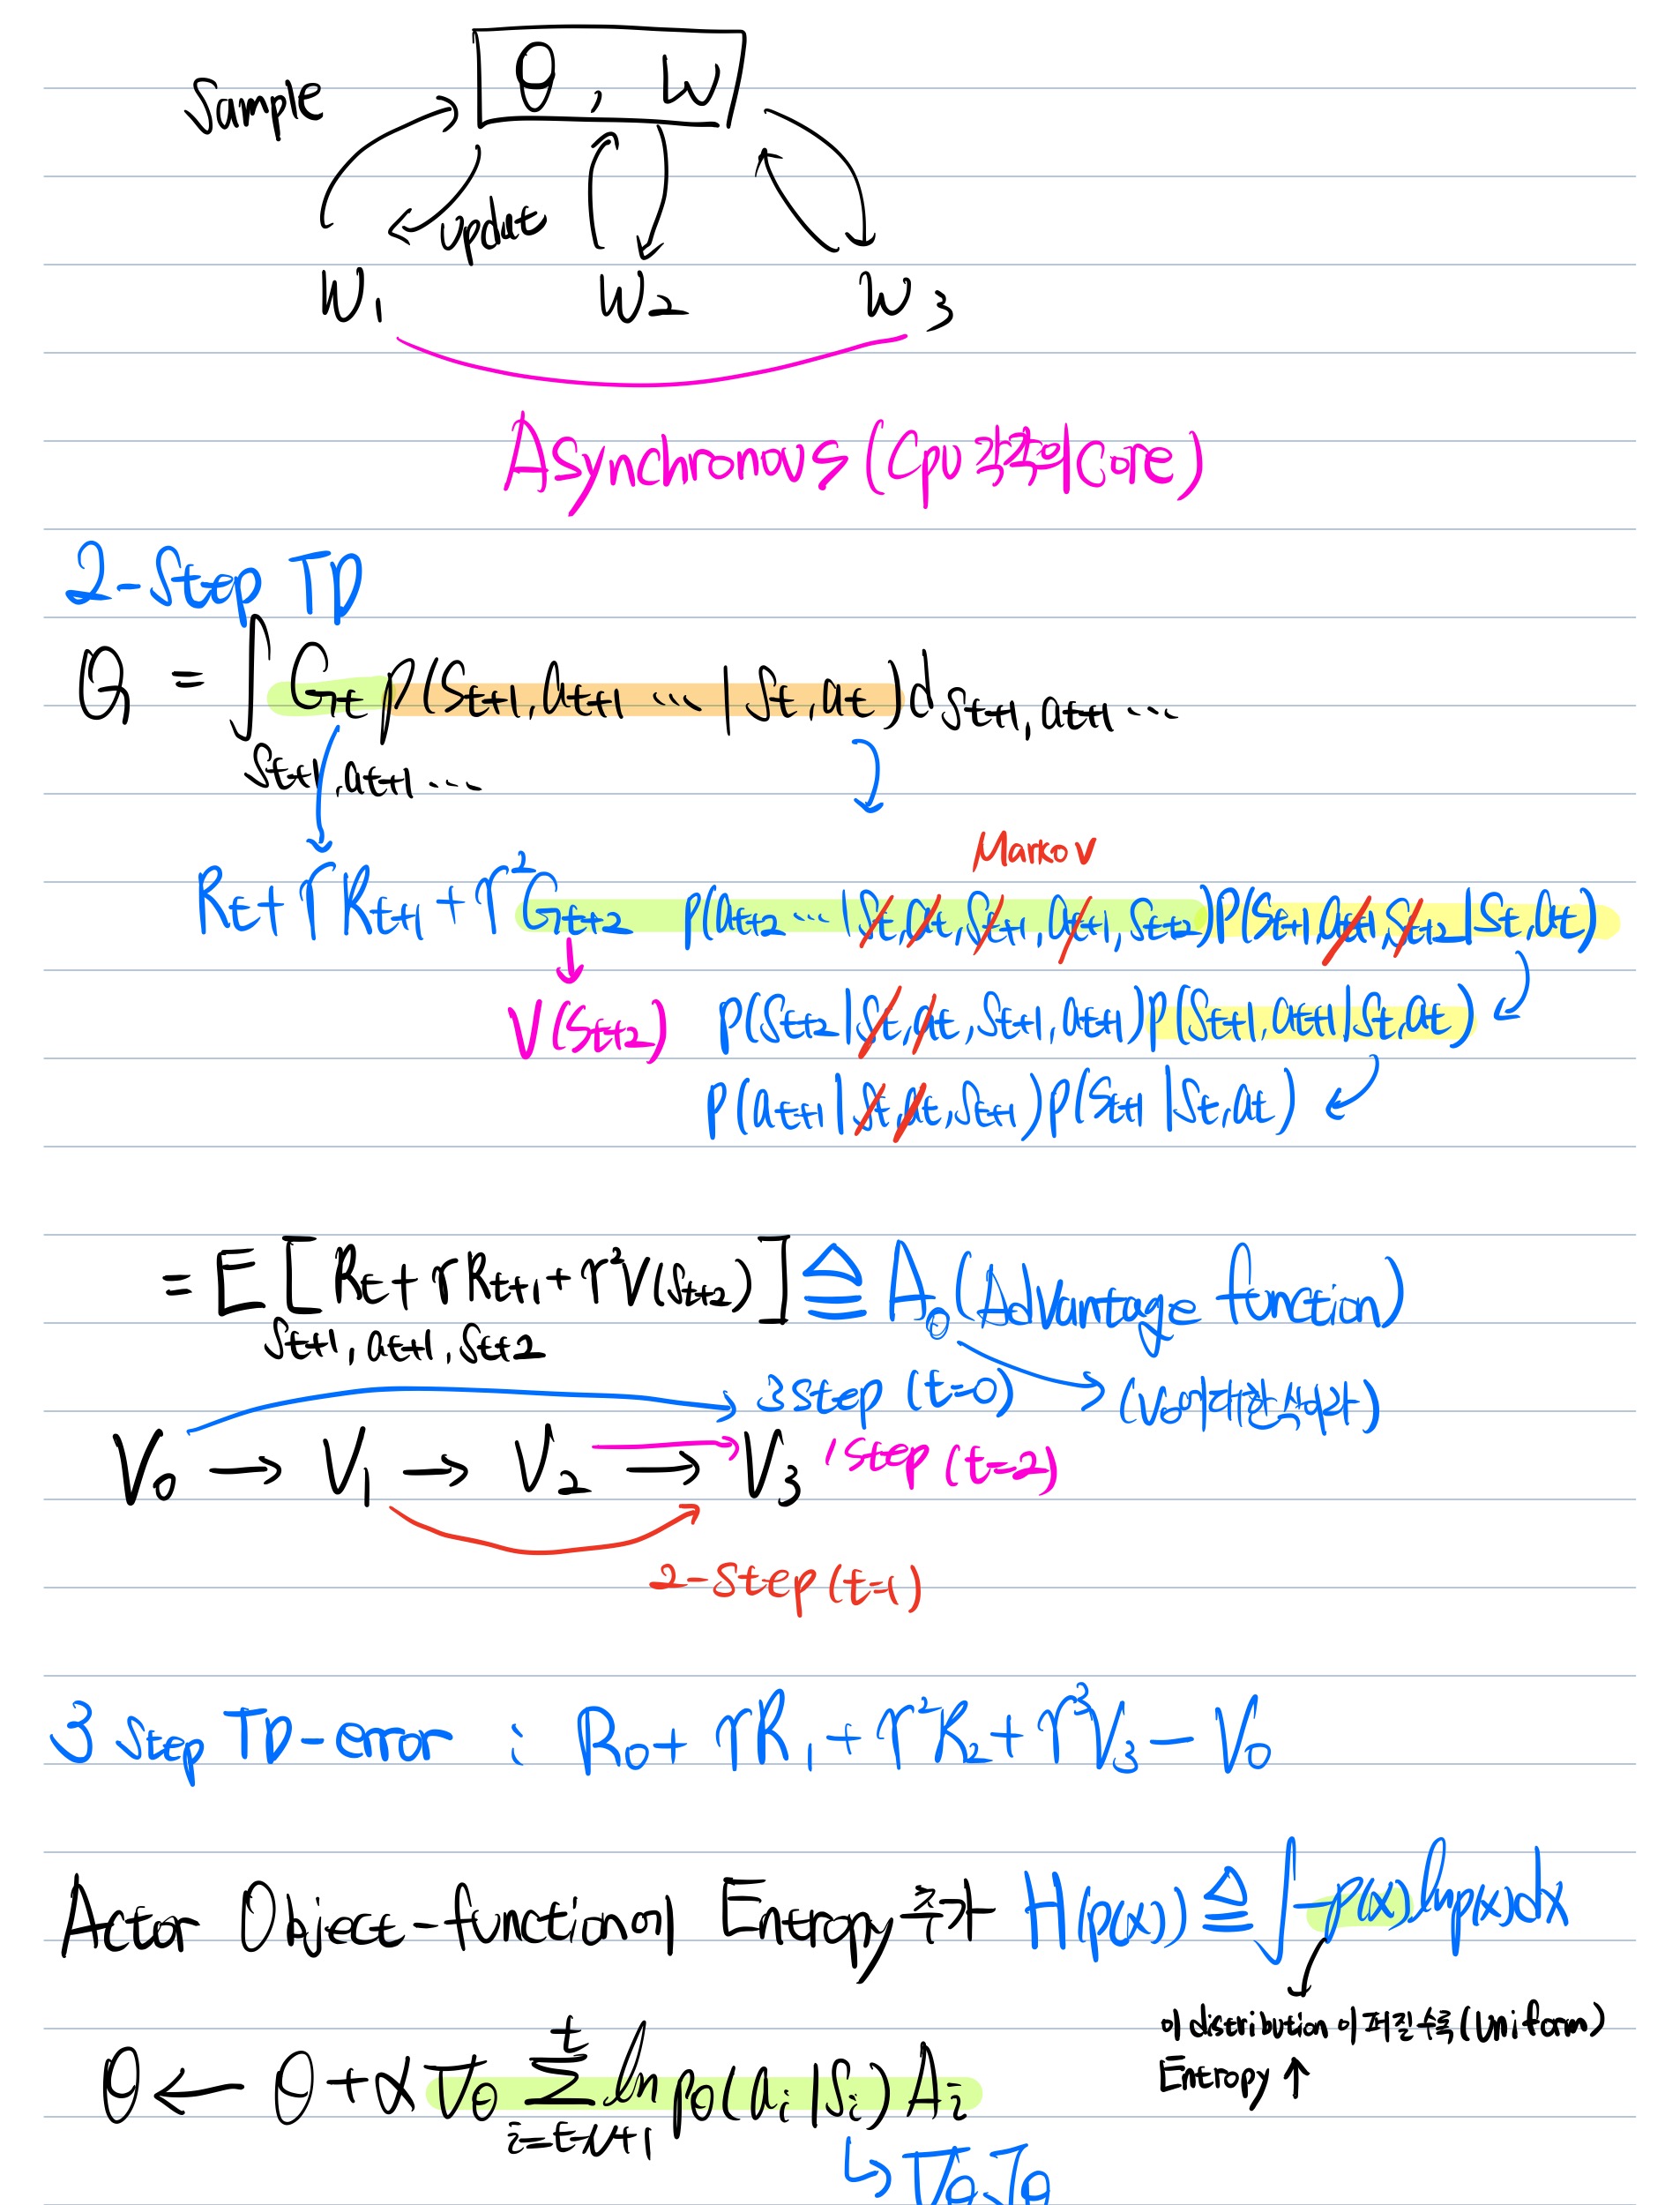 Sample
θ, W
update
W₁ W₂ W₃
Asynchronous (Cpu 각각의 Core)
2-Step TD
Q = ∫ Gt p(St+1, at+1 ... | St, at) dSt+1, at+1 ...
St+1, at+1 ...
Markov
Rt + γRt+1 + γ²Gt+2 p(at+2 ... | St, at, St+1, at+1, St+2) P(St+1, at+1, St+2 | St, at)
V(St+2) p(St+2 | St, at, St+1, at+1) p(St+1, at+1 | St, at)
p(at+1 | St, at, St+1) p(St+1 | St, at)
= E [Rt + γRt+1 + γ²V(St+2)] ≜ A₀ (Advantage function)
St+1, at+1, St+2
3 Step (t=0) (V₀에 대한 식이라)
V₀ → V₁ → V₂ → V₃ 1 Step (t=2)
2-Step (t=1)
3 Step TD-error : R₀ + γR₁ + γ²R₂ + γ³V₃ - V₀
Actor Object-function에 Entropy 추가 H(p(x)) ≜ ∫ -p(x) ln p(x) dx
이 distribution이 퍼질수록 (Uniform)
Entropy ↑
θ ← θ + α ∇θ Σ ln pθ(ai | Si) Ai
t
i=t-N+1
∇θJθ